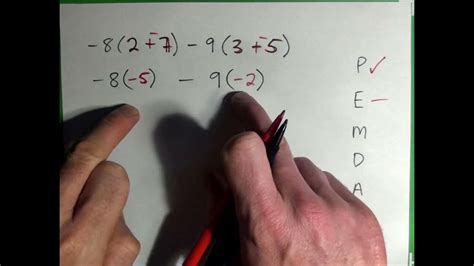 -8(2+⁻7) - 9(3+⁻5)
-8(-5) - 9(-2)
P ✓
E –
M
D
A